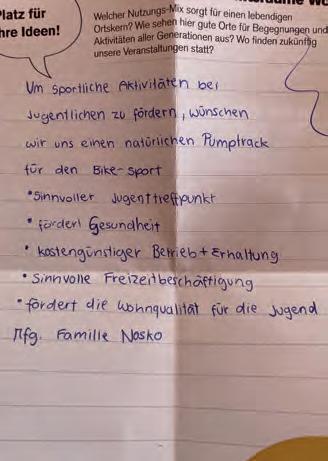 Platz für
hre Ideen!
Welcher Nutzungs-Mix sorgt für einen lebendigen
Ortskern? Wie sehen hier gute Orte für Begegnungen und
Aktivitäten aller Generationen aus? Wo finden zukünftig
unsere Veranstaltungen statt?
Um sportliche Aktivitäten bei
Jugentlichen zu fördern, wünschen
wir uns einen natürlichen Pumptrack
für den Bike-sport
• Sinnvoller Jugenttreffpunkt
• fördert Gesundheit
• kostengünstiger Betrieb + Erhaltung
• Sinnvolle Freizeitbeschäftigung
• fördert die Wohnqualität für die Jugend
Mfg. Familie Nosko